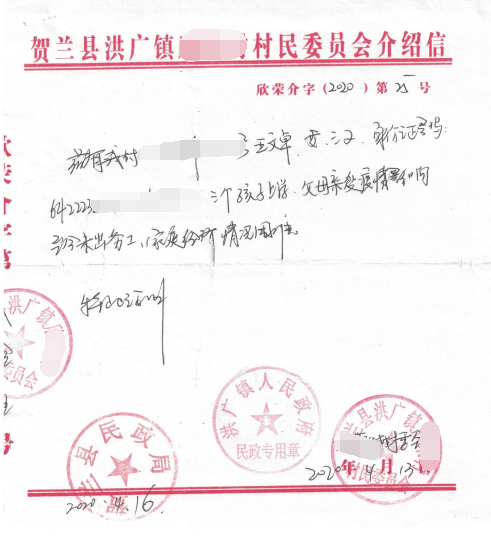 贺兰县洪广镇 村民委员会介绍信
欣荣介字(2020)第25号
兹有我村 王文卓, 女, 汉, 身份证号码:
642223 三个孩子上学, 父母亲受疫情影响
至今未出务工, 家庭经济情况困难。
特此证明
欣荣介字第
号
洪广镇
委员会
贺兰县民政局
2020.4.16
洪广镇人民政府
民政专用章
贺兰县洪广镇
村民委员会
村委会
2020年4月13日